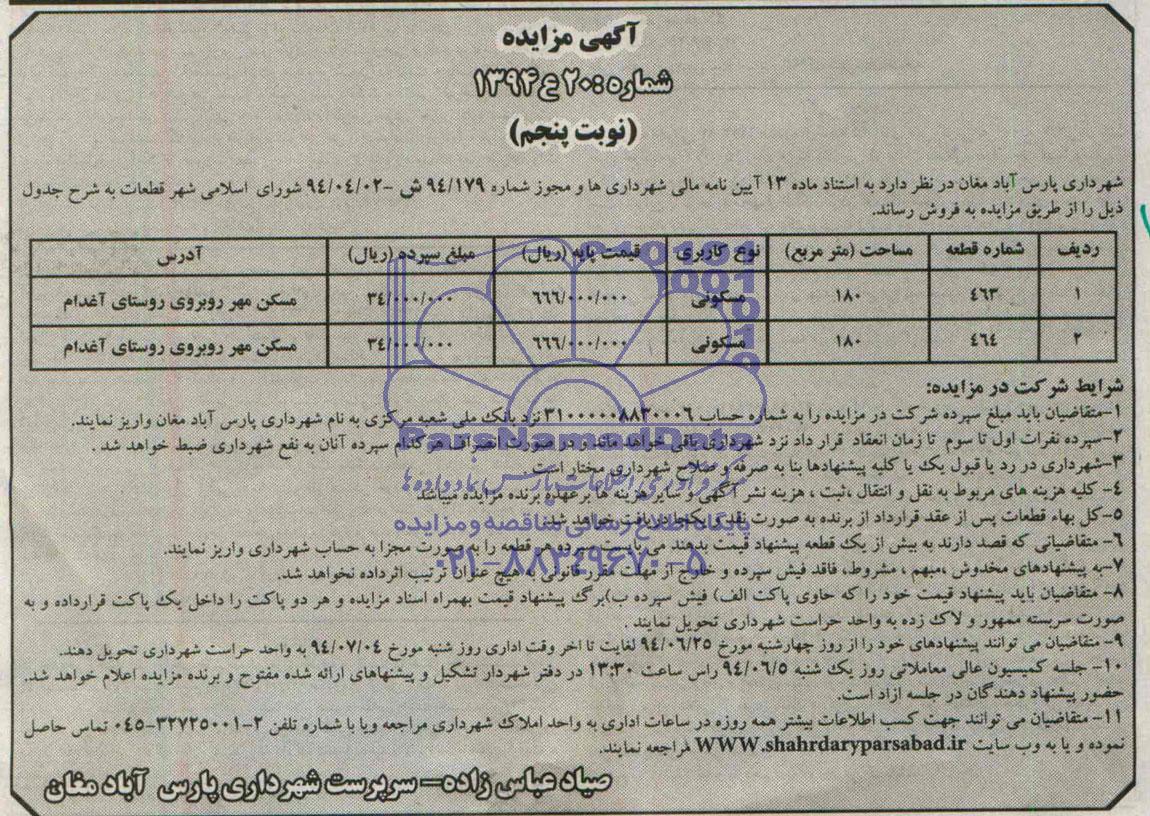 آگهی مزایده
شماره: ۲۰ ع ۱۳۹۴
(نوبت پنجم)
شهرداری پارس آباد مغان در نظر دارد به استناد ماده ۱۳ آیین نامه مالی شهرداری ها و مجوز شماره ۹۴/۱۷۹ ش -۹۴/۰۴/۰۲ شورای اسلامی شهر قطعات به شرح جدول
ذیل را از طریق مزایده به فروش رساند.
ردیف شماره قطعه مساحت (متر مربع) نوع کاربری قیمت پایه (ریال) مبلغ سپرده (ریال) آدرس
۱ ٤٦٣ ۱۸۰ مسکونی ٦٦٦/۰۰۰/۰۰۰ ٣٤/۰۰۰/۰۰۰ مسکن مهر روبروی روستای آغدام
۲ ٤٦٤ ۱۸۰ مسکونی ٦٦٦/۰۰۰/۰۰۰ ٣٤/۰۰۰/۰۰۰ مسکن مهر روبروی روستای آغدام
شرایط شرکت در مزایده:
۱-متقاضیان باید مبلغ سپرده شرکت در مزایده را به شماره حساب ۳۱۰۰۰۰۰۸۸۳۰۰۰۶ نزد بانک ملی شعبه مرکزی به نام شهرداری پارس آباد مغان واریز نمایند.
۲-سپرده نفرات اول تا سوم تا زمان انعقاد قرار داد نزد شهرداری باقی خواهد ماند و در صورت انصراف هر کدام سپرده آنان به نفع شهرداری ضبط خواهد شد .
۳-شهرداری در رد یا قبول یک یا کلیه پیشنهادها بنا به صرفه و صلاح شهرداری مختار است .
٤- کلیه هزینه های مربوط به نقل و انتقال ،ثبت ، هزینه نشر آگهی و سایر هزینه ها بر عهده برنده مزایده میباشد
۵-کل بهاء قطعات پس از عقد قرارداد از برنده به صورت نقد و یکجا دریافت خواهد شد.
۶- متقاضیانی که قصد دارند به بیش از یک قطعه پیشنهاد قیمت بدهند می بایست سپرده هر قطعه را به صورت مجزا به حساب شهرداری واریز نمایند.
۷-به پیشنهادهای مخدوش ،مبهم ، مشروط، فاقد فیش سپرده و خارج از مهلت مقرر قانونی به هیچ عنوان ترتیب اثرداده نخواهد شد.
۸- متقاضیان باید پیشنهاد قیمت خود را که حاوی پاکت الف) فیش سپرده ب)برگ پیشنهاد قیمت بهمراه اسناد مزایده و هر دو پاکت را داخل یک پاکت قرارداده و به
صورت سربسته ممهور و لاک زده به واحد حراست شهرداری تحویل نمایند .
۹- متقاضیان می توانند پیشنهادهای خود را از روز چهارشنبه مورخ ۹۴/۰۶/۲۵ لغایت تا اخر وقت اداری روز شنبه مورخ ۹۴/۰۷/۰۴ به واحد حراست شهرداری تحویل دهند.
۱۰- جلسه کمیسیون عالی معاملاتی روز یک شنبه ۹۴/۰۶/۵ راس ساعت ۱۳:۳۰ در دفتر شهردار تشکیل و پیشنهاهای ارائه شده مفتوح و برنده مزایده اعلام خواهد شد.
حضور پیشنهاد دهندگان در جلسه ازاد است.
۱۱- متقاضیان می توانند جهت کسب اطلاعات بیشتر همه روزه در ساعات اداری به واحد املاک شهرداری مراجعه ویا با شماره تلفن ۲-۳۲۷۲۵۰۰۱-۰۴۵ تماس حاصل
نموده و یا به وب سایت WWW.shahrdaryparsabad.ir مراجعه نمایند.
صیاد عباس زاده– سرپرست شهرداری پارس آباد مغان
ParsNamadData
پایگاه اطلاع رسانی مناقصه و مزایده
۰۲۱-۸۸۳۴۹۶۷۰-۵